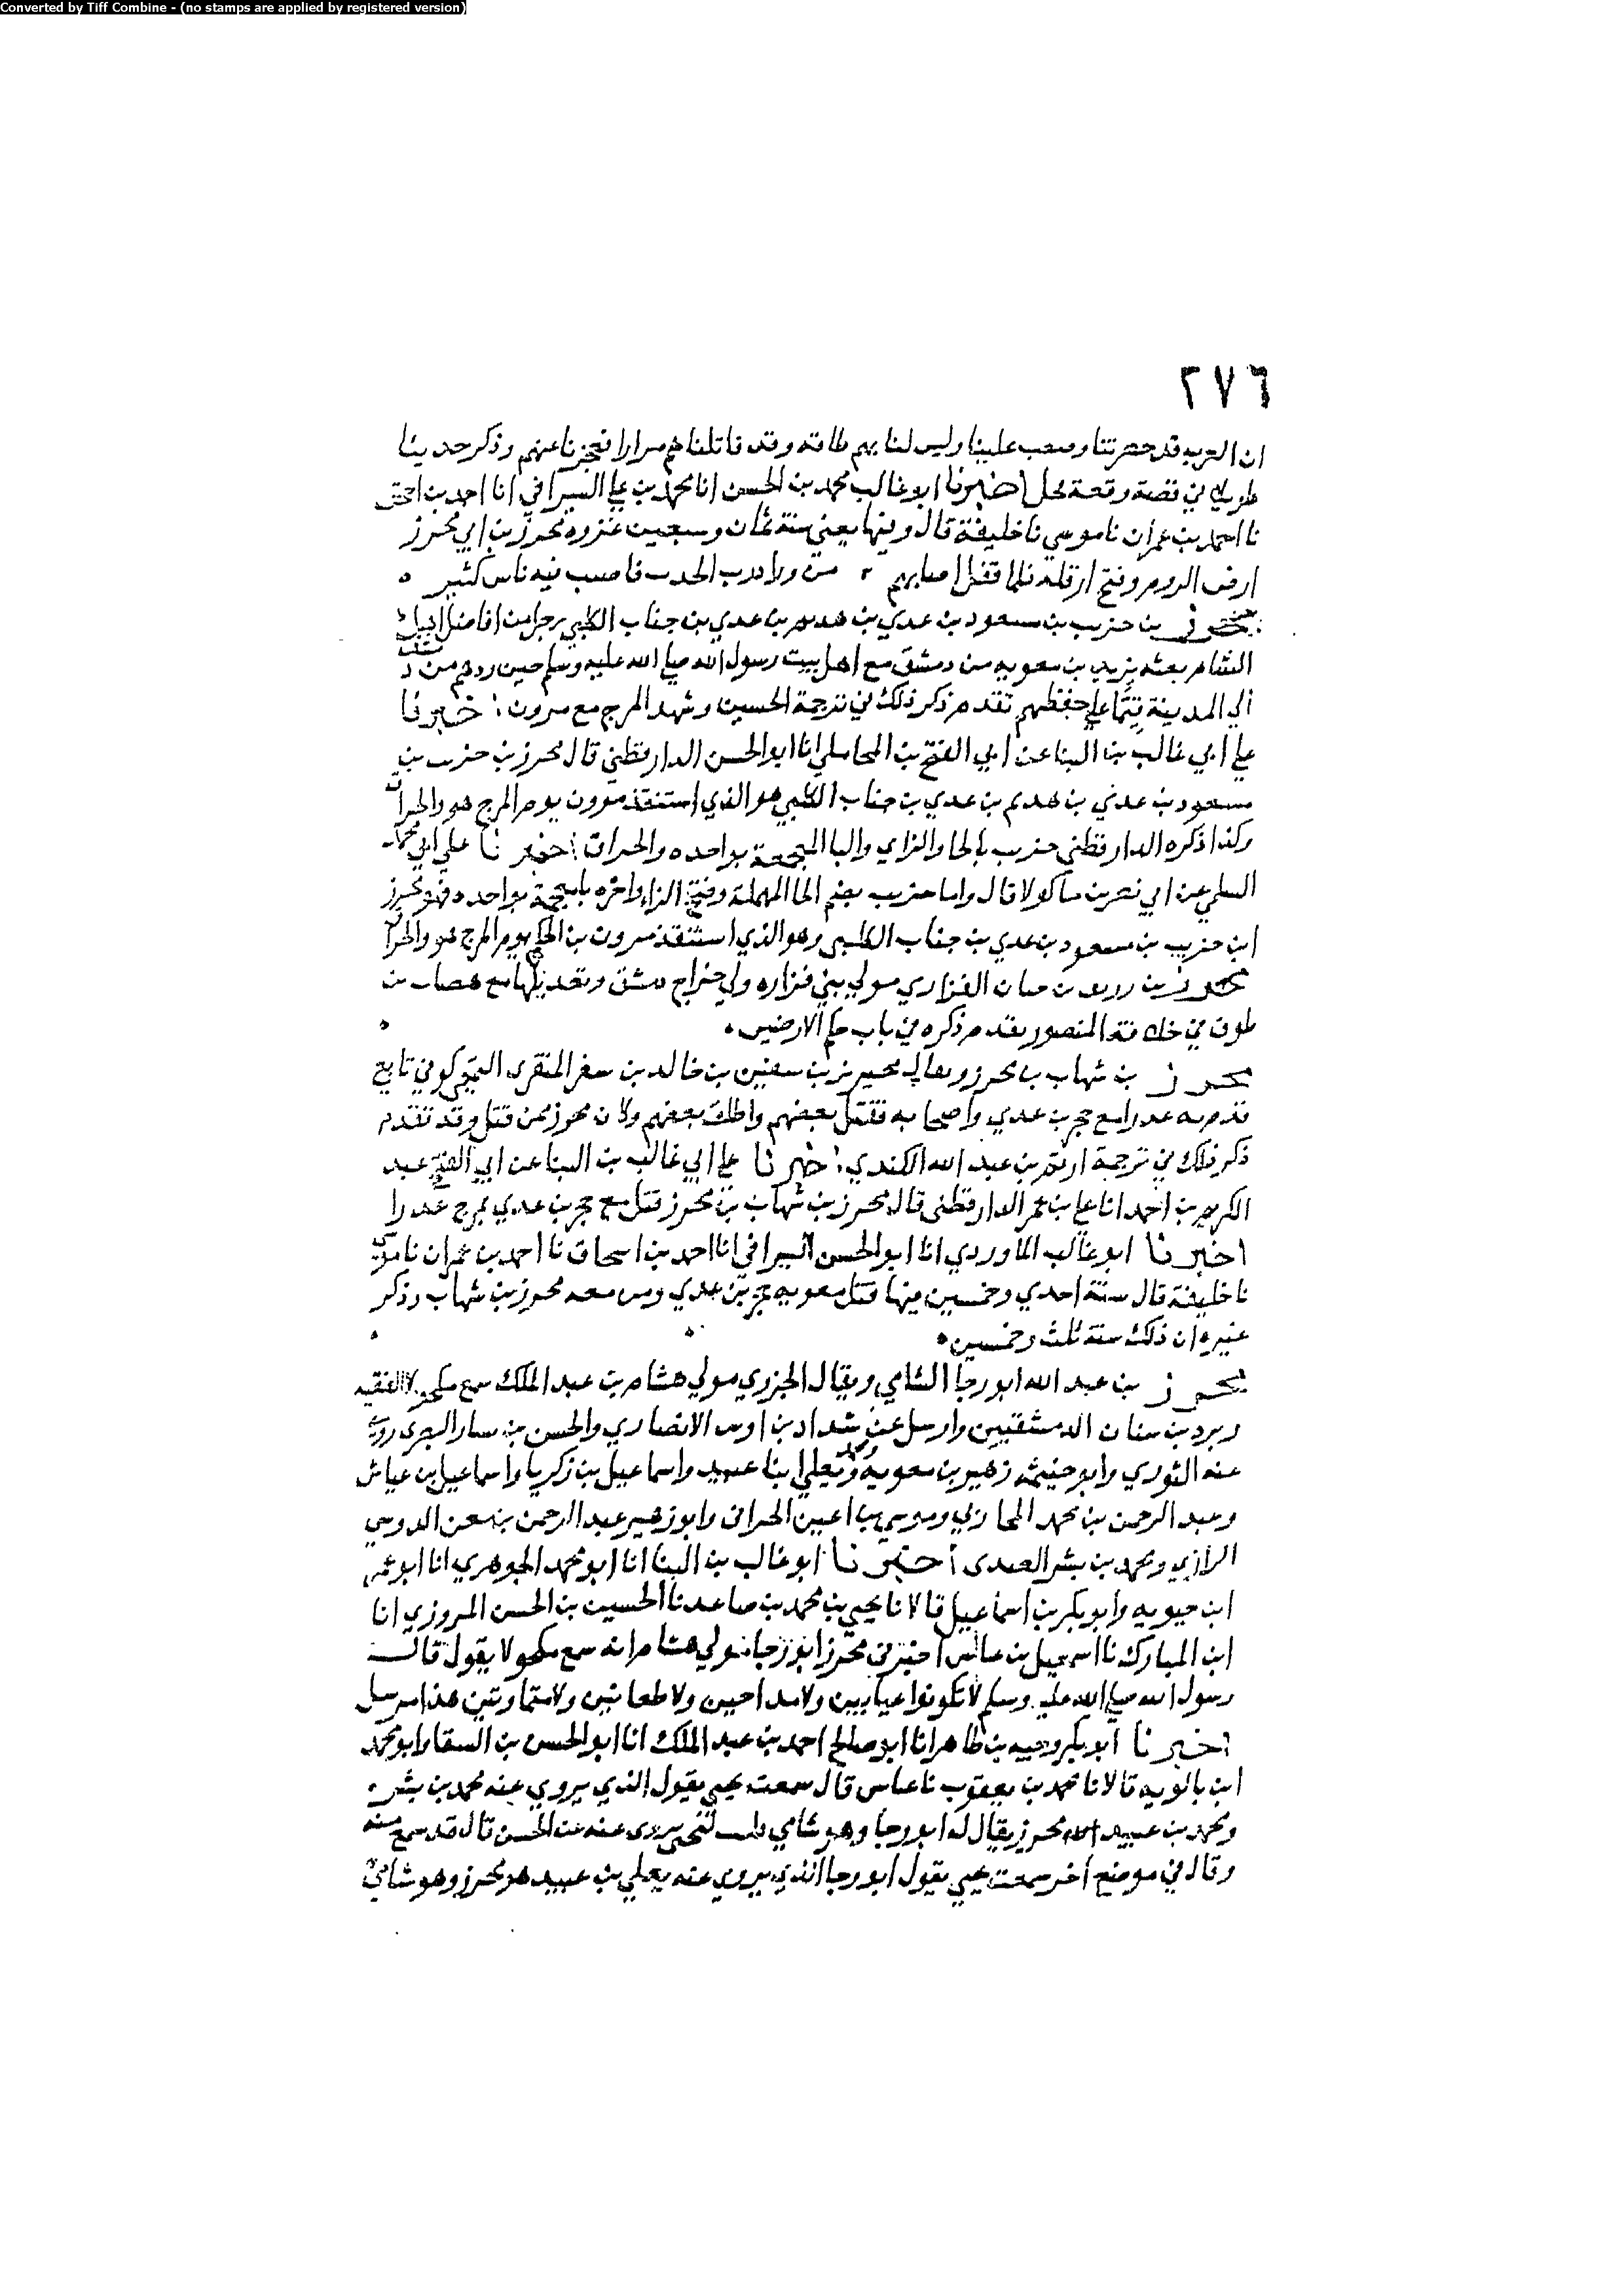 Converted by Tiff Combine - (no stamps are applied by registered version)
٢٧٦
ان العرب قد حصرتنا وصعب علينا وليس لنا بهم طاقة وقد قاتلناهم مرارا فعجزنا عنهم وذكر حديثا
طويلا في قصة وقعة فحل اخبرنا ابو غالب محمد بن الحسن انا محمد بن علي السيرافي انا احمد بن اسحق
نا احمد بن عمران نا موسي نا خليفة قال وفيها يعني سنة ثمان وسبعين غزوة محرز بن ابي محرز
ارض الروم وفتح ارقلة فلما قفل اصابهم من ورا درب الحدث فاصيب فيه ناس كثير
محرز بن حزيب بن مسعود بن عدي بن هذيم بن عدي بن جناب الكلبي رجل من افاضل اهل
الشام بعثه يزيد بن معويه من دمشق مع اهل بيت رسول الله صلي الله عليه وسلم حين ردهم من دمشق
الي المدينة قيما علي حفظهم تقدم ذكر ذلك في ترجمة الحسين وشهد المرج مع مروان اخبرنا
علي ابي غالب بن البنا عن ابي الفتح بن المحاملي انا ابو الحسن الدارقطني قال محرز بن حزيب بن
مسعود بن عدي بن هذيم بن عدي بن جناب الكلبي هو الذي استنقذ مرون يوم المرج هو والحراق
وكذا ذكره الدارقطني حزيب بالحا والزاي والبا المعجمة بواحده والحراق اخبرنا علي ابي محمد
السلمي عن ابي نصر بن ماكولا قال واما حزيب بضم الحا المهملة وفتح الزاء واخره با معجمة بواحده فهو محرز
ابن حزيب بن مسعود بن عدي بن جناب الكلبي وهو الذي استنقذ مرون بن الحكم يوم المرج هو والحراق
محرز بن حيان الفزاري مولي بني فزاره ولي خراج دمشق وتعديلها مع هضاب بن
طوق في خلافة المنصور تقدم ذكره في باب حكم الارضين
محرز بن شهاب بن محرز ويقال محيرز بن سفين بن خالد بن سفر المنقري التميمي كوفي تابع
قدم به عذرا مع حجر بن عدي واصحابه فقتل بعضهم واطلق بعضهم وكان محرز ممن قتل وقد تقدم
ذكر ذلك في ترجمة ارقم بن عبد الله الكندي اخبرنا علي ابي غالب بن البنا عن ابي الفتح عبد
الكريم بن احمد انا علي بن عمر الدارقطني قال محرز بن شهاب بن محرز قتل مع حجر بن عدي بمرج عذرا
اخبرنا ابو غالب الماوردي انا ابو الحسن السيرافي انا احمد بن اسحاق نا احمد بن عمران نا موسي
نا خليفة قال سنة احدي وخمسين فيها قتل معويه حجر بن عدي ومن معه محرز بن شهاب وذكر
غيره ان ذلك سنة ثلث وخمسين
محرز بن عبد الله ابو رجا الشامي ويقال الجزري مولي هشام بن عبد الملك سمع مكحولا الفقيه
وبرد بن سنان الدمشقيين وارسل عن شداد بن اوس الانصاري والحسن بن يسار البصري روي
عنه الثوري وابو خيثمة زهير بن معويه ومحمد ويعلي ابنا عبيد واسماعيل بن زكريا واسماعيل بن عياش
وعبد الرحمن بن محمد المحاربي وموسي بن اعين الحراني وابو زهير عبد الرحمن بن معن الدوسي
الرازي ومحمد بن بشر العبدي اخبرنا ابو غالب بن البنا انا ابو محمد الجوهري انا ابو عمر
ابن حيويه وابو بكر بن اسماعيل قالا نا يحيي بن محمد بن صاعد نا الحسين بن الحسن المروزي انا
ابن المبارك نا اسمعيل بن عياش اخبرني محرز ابو رجا مولي هشام انه سمع مكحولا يقول قال
رسول الله صلي الله عليه وسلم لا تكونوا عيابين ولا مداحين ولا طعانين ولا متماوتين هذا مرسل
اخبرنا ابو بكر وجيه بن طاهر انا ابو صالح احمد بن عبد الملك انا ابو الحسن بن السقا وابو محمد
ابن بالويه قالا نا محمد بن يعقوب نا عباس قال سمعت يحيي يقول الذي يروي عنه محمد بن بشر
ومحمد بن عبيد الله محرز يقال له ابو رجا وهو شامي قلت ليحيي يروي عنه عن الحسن قال قد سمع منه
وقال في موضع اخر سمعت يحيي يقول ابو رجا الذي يروي عنه يعلي بن عبيد هو محرز وهو شامي